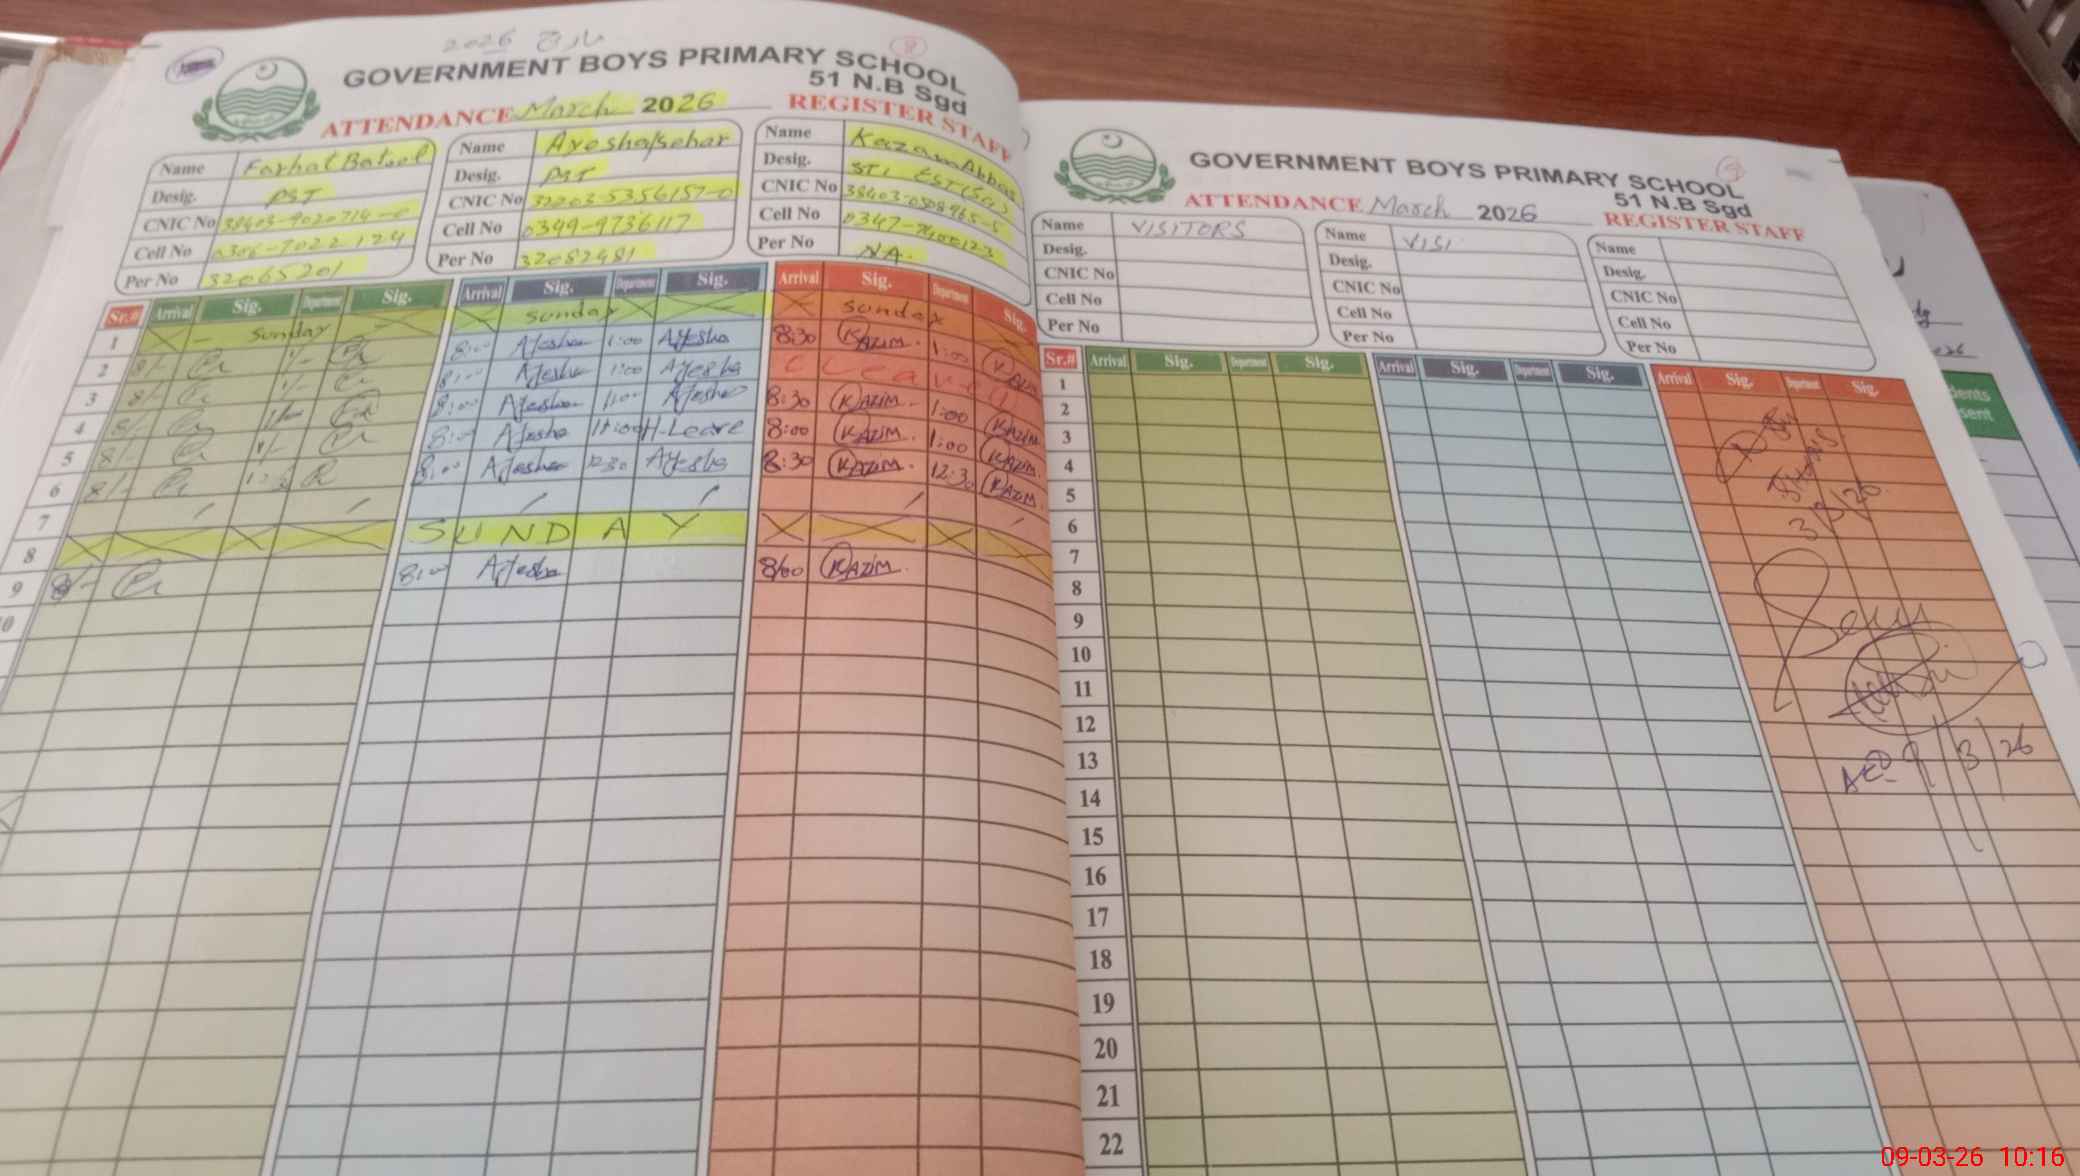 2026 مارچ
GOVERNMENT BOYS PRIMARY SCHOOL
51 N.B Sgd
ATTENDANCE March 2026 REGISTER STAFF
Name Farhat Batool
Desig. PST
CNIC No 38403-9020714-0
Cell No 0306-7022124
Per No 32065201
Name Ayesha Sehar
Desig. PST
CNIC No 32203-5356157-0
Cell No 0349-9736117
Per No 32082981
Name Kazam Abbas
Desig. STI
CNIC No
Cell No
Per No NA.
Sr.# Arrival Sig. Department Sig. Arrival Sig. Department Sig. Arrival Sig. Department Sig.
1 Sunday Sunday Sunday
2 8/- 1/- 8:00 Ayesha 1:00 Ayesha 8:30 KAZIM. 1:00 KAZIM
3 8/- 1/- 8:00 Ayesha 1:00 Ayesha C Leave
4 8/- 8:00 Ayesha 1:00 Ayesha 8:30 KAZIM. 1:00 KAZIM
5 8/- 1/- 8:00 Ayesha 11:00 H-Leave 8:00 KAZIM. 1:00 KAZIM.
6 8/- 8:00 Ayesha 12:30 Ayesha 8:30 KAZIM. 12:30 KAZIM.
7
8 SUNDAY
9 8/- 8:00 Ayesha 8:00 KAZIM.
10
GOVERNMENT BOYS PRIMARY SCHOOL
51 N.B Sgd
ATTENDANCE March 2026 REGISTER STAFF
Name VISITORS
Desig.
CNIC No
Cell No
Per No
Name VISI
Desig.
CNIC No
Cell No
Per No
Name
Desig.
CNIC No
Cell No
Per No
Sr.# Arrival Sig. Department Sig. Arrival Sig. Department Sig. Arrival Sig. Department Sig.
1
2
3
4
5
6
7
8
9
10
11
12
13
14
15
16
17
18
19
20
21
22
3/3/26
AEO 9/3/26
09-03-26 10:16